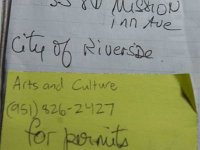 MISSION
inn Ave
City of Riverside
Arts and Culture
(951) 826-2427
for permits